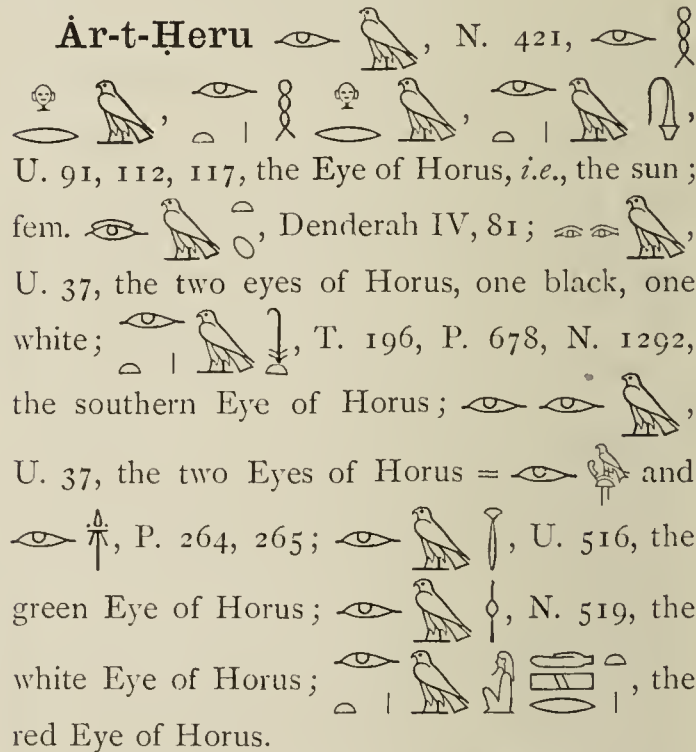 Ȧr-t-Ḥeru 𓁹 𓅃, N. 421, 𓁹 𓎛
𓁷 𓂋 𓅃, 𓁹 𓏏 𓏤 𓎛 𓁷 𓂋 𓅃, 𓁹 𓏏 𓏤 𓅃,
U. 91, 112, 117, the Eye of Horus, i.e., the sun;
fem. 𓅃 𓏏 𓆇, Denderah IV, 81; 𓅃,
U. 37, the two eyes of Horus, one black, one
white; 𓁹 𓏏 𓏤 𓅃, T. 196, P. 678, N. 1292,
the southern Eye of Horus; 𓁹 𓁹 𓅃,
U. 37, the two Eyes of Horus = 𓁹 and
𓁹, P. 264, 265; 𓁹 𓅃 𓇅, U. 516, the
green Eye of Horus; 𓁹 𓅃 𓌉, N. 519, the
white Eye of Horus; 𓁹 𓏏 𓏤 𓅃 𓏏 𓏤, the
red Eye of Horus.